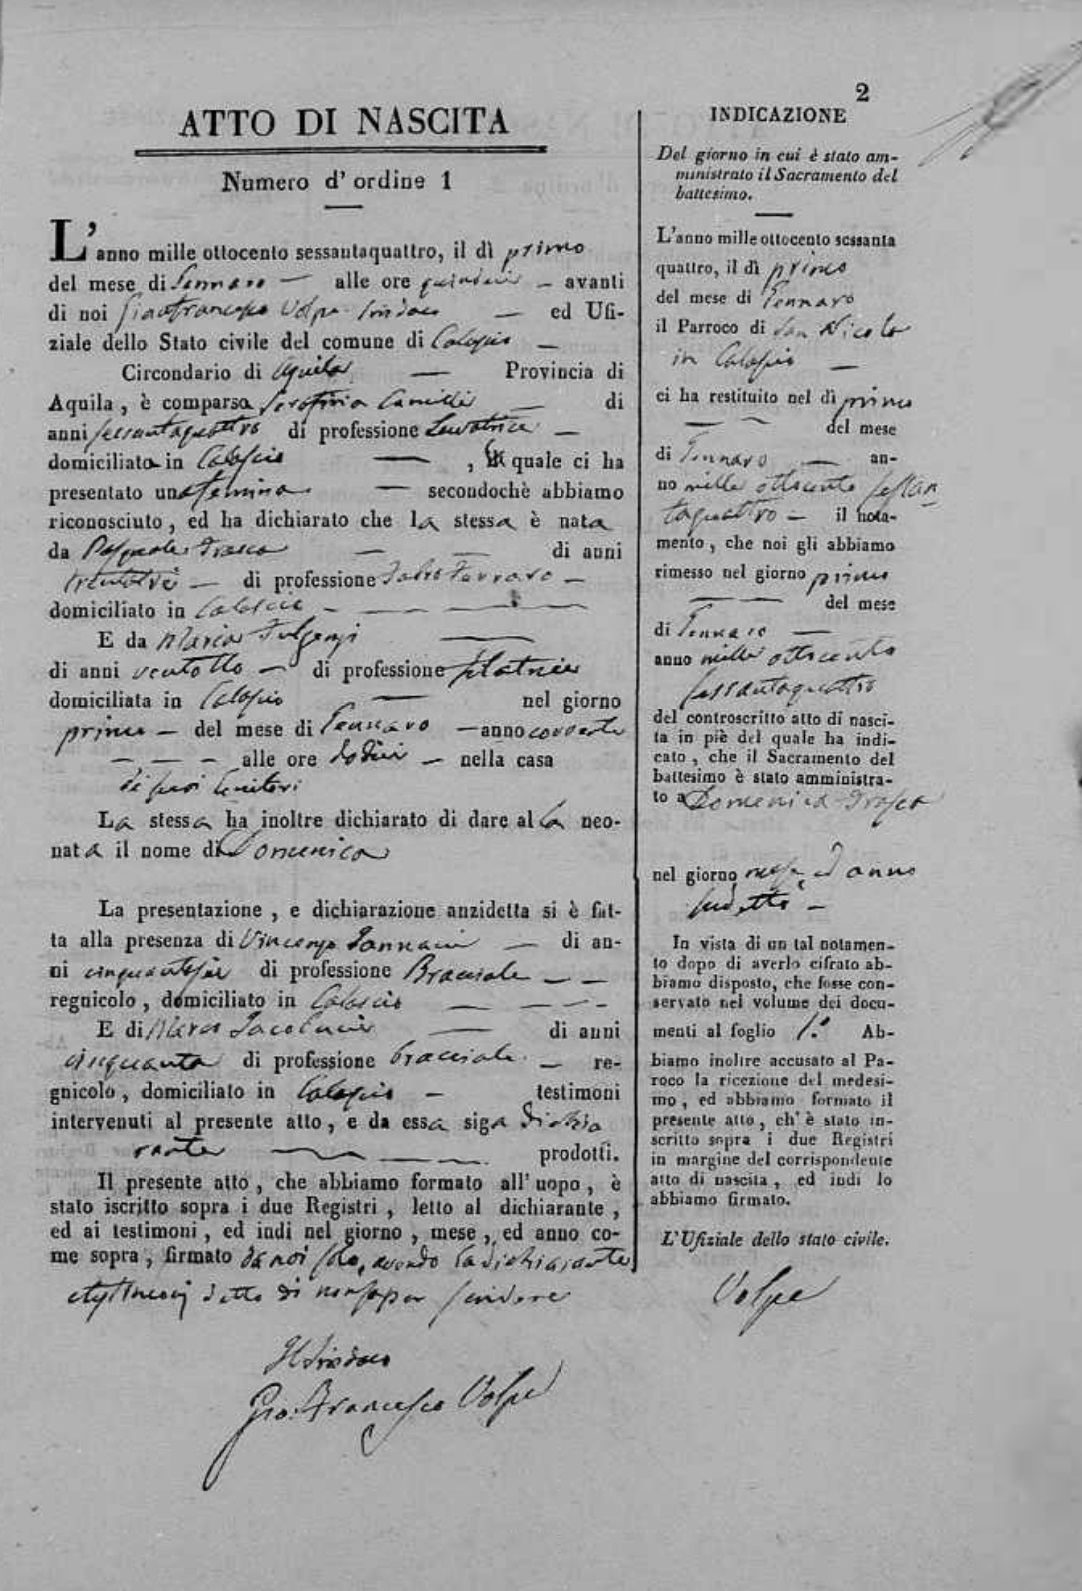 2
ATTO DI NASCITA
Numero d' ordine 1
L' anno mille ottocento sessantaquattro, il dì primo
del mese di Gennaro — alle ore quindici — avanti
di noi Gianfrancesco Volpe Sindaco — ed Ufi-
ziale dello Stato civile del comune di Calascio —
Circondario di Aquila — Provincia di
Aquila, è comparsa Serafina Camilli — di
anni sessantaquattro di professione Levatrice —
domiciliata in Calascio — , la quale ci ha
presentato una femina — secondochè abbiamo
riconosciuto, ed ha dichiarato che la stessa è nata
da Pasquale Frasca — — di anni
trentatrè — di professione Fabro Ferraro —
domiciliato in Calascio — — — —
E da Maria Fulgenzi —
di anni ventotto — di professione filatrice
domiciliata in Calascio — nel giorno
primo — del mese di Gennaro — anno corrente
— — — alle ore dodici — nella casa
di suoi Genitori
La stessa ha inoltre dichiarato di dare alla neo-
nata il nome di Domenica
La presentazione, e dichiarazione anzidetta si è fat-
ta alla presenza di Vincenzo Iannacci — di an-
ni cinquantasei di professione Bracciale — —
regnicolo, domiciliato in Calascio — — — —
E di Marco Iacobucci — di anni
cinquanta di professione bracciale — re-
gnicolo, domiciliato in Calascio — testimoni
intervenuti al presente atto, e da essa siga dichia
rante — — — prodotti.
Il presente atto, che abbiamo formato all' uopo, è
stato iscritto sopra i due Registri, letto al dichiarante,
ed ai testimoni, ed indi nel giorno, mese, ed anno co-
me sopra, firmato da noi solo, avendo la dichiarante
e testimoni detto di non saper scrivere
Il Sindaco
Gio: Francesco Volpe
INDICAZIONE
Del giorno in cui è stato am-
ministrato il Sacramento del
battesimo.
L'anno mille ottocento sessanta
quattro, il dì primo
del mese di Gennaro
il Parroco di San Nicola
in Calascio —
ci ha restituito nel dì primo
— — del mese
di Gennaro — an-
no mille ottocento sessan
taquattro — il nota-
mento, che noi gli abbiamo
rimesso nel giorno primo
— — del mese
di Gennaro —
anno mille ottocento
sessantaquattro
del controscritto atto di nasci-
ta in piè del quale ha indi-
cato, che il Sacramento del
battesimo è stato amministra-
to a Domenica Frasca
nel giorno, mese, ed anno
sudetto —
In vista di un tal notamen-
to dopo di averlo cifrato ab-
biamo disposto, che fosse con-
servato nel volume dei docu-
menti al foglio 1.° Ab-
biamo inoltre accusato al Pa-
roco la ricezione del medesi-
mo, ed abbiamo formato il
presente atto, ch' è stato in-
scritto sopra i due Registri
in margine del corrispondente
atto di nascita, ed indi lo
abbiamo firmato.
L'Ufiziale dello stato civile.
Volpe